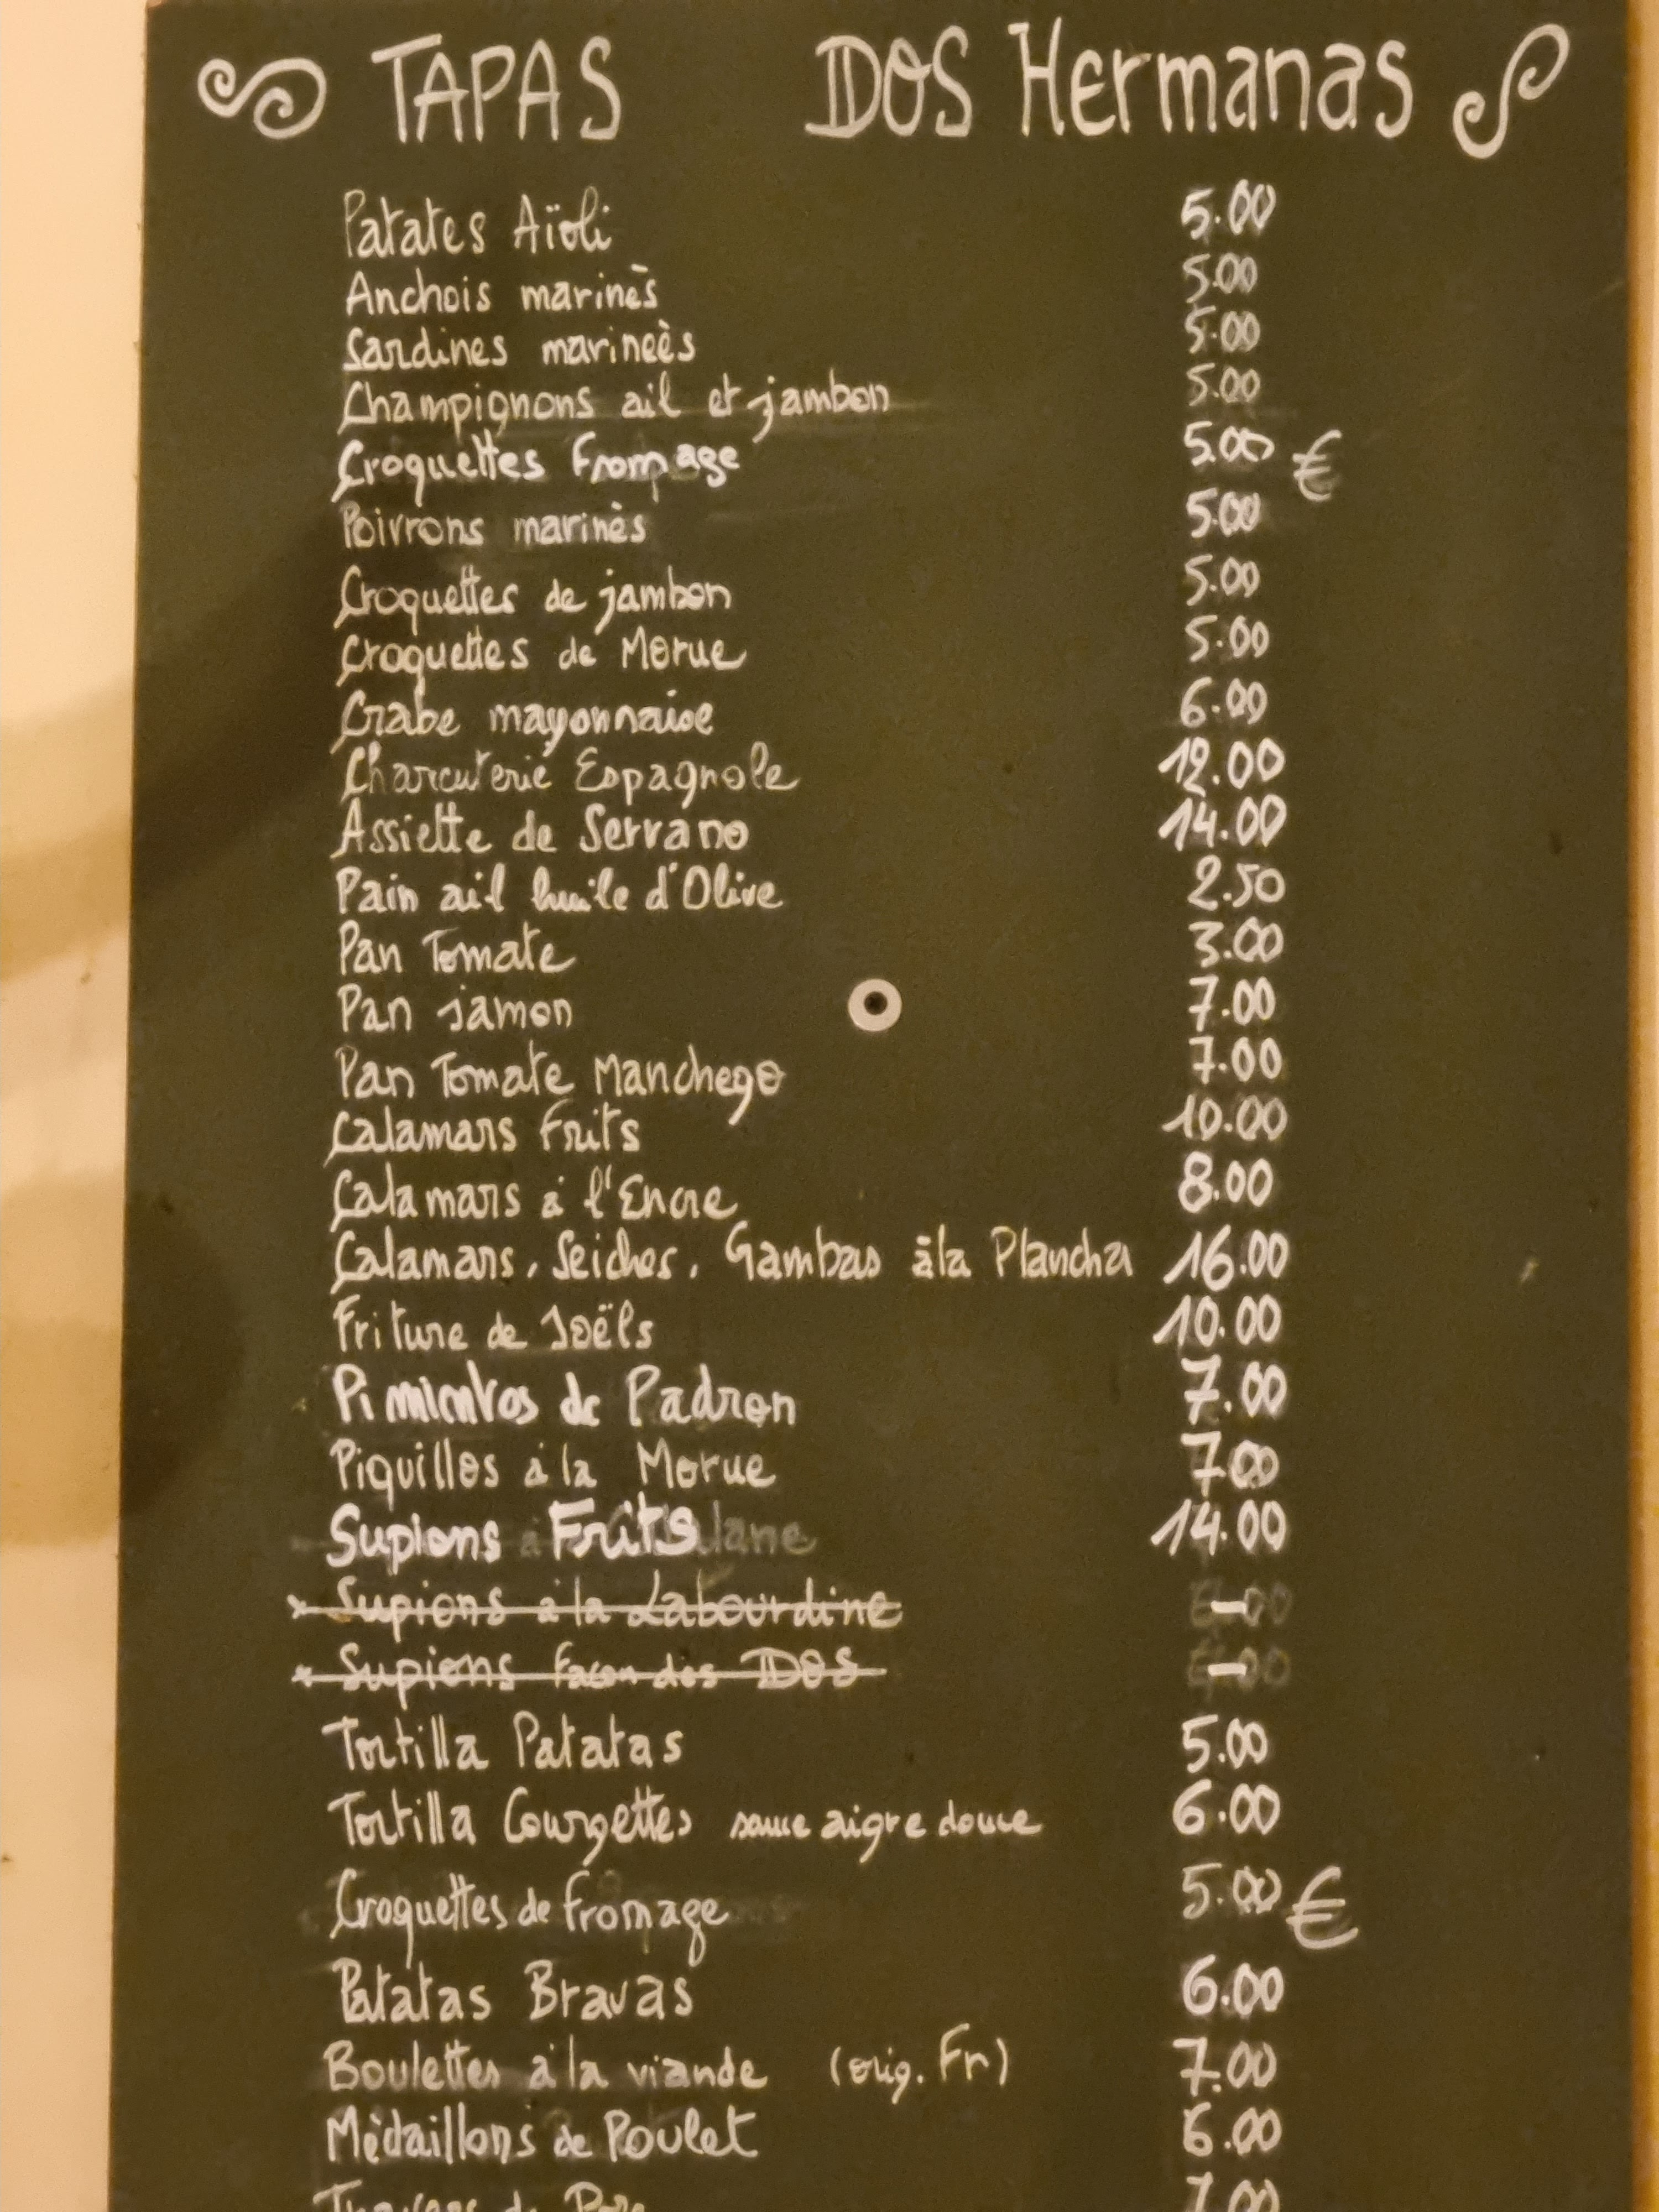 TAPAS DOS Hermanas
Patates Aïoli 5.00
Anchois marinès 5.00
Sardines marineès 5.00
Champignons ail et jambon 5.00
Croquettes Fromage 5.00 €
Poivrons marinès 5.00
Croquettes de jambon 5.00
Croquettes de Morue 5.00
Crabe mayonnaise 6.00
Charcuterie Espagnole 12.00
Assiette de Serrano 14.00
Pain ail huile d'Olive 2.50
Pan Tomate 3.00
Pan jamon 7.00
Pan Tomate Manchego 7.00
Calamars Frits 10.00
Calamars à l'Encre 8.00
Calamars, Seiches, Gambas à la Plancha 16.00
Friture de Joëls 10.00
Pimientos de Padron 7.00
Piquillos à la Morue 7.00
Supions Frits 14.00
Supions à la Labourdine -
Supions façon des DOS -
Tortilla Patatas 5.00
Tortilla Courgettes sauce aigre douce 6.00
Croquettes de fromage 5.00 €
Patatas Bravas 6.00
Boulettes à la viande (orig. Fr) 7.00
Mèdaillons de Poulet 6.00
de 7.00